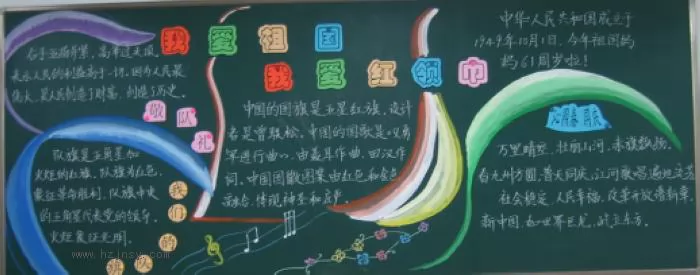 我爱祖国
我爱红领巾
右手五指并紧，高举过头顶，
表示人民的利益高于一切，因为人民最
伟大，是人民创造了财富，创造了历史。
敬队礼
队旗是五角星和
火炬的红旗，队旗为红色，
象征革命胜利，队旗中央
的五角星代表党的领导，
火炬象征光明。
我们的
队
中国的国旗是五星红旗，设计
者是曾联松。中国的国歌是《义勇
军进行曲》，由聂耳作曲，田汉作
词。中国国徽图案由红色和金色
中华人民共和国成立于
1949年10月1日，今年祖国妈
妈61周岁啦！
万里晴空，壮丽山河，赤旗飘扬。
看九州方圆，普天同庆，江河歌唱
社会稳定，人民幸福，改革开放谱新章。
新中国，如世界巨龙，屹立东方。
www.hzjnsy.com